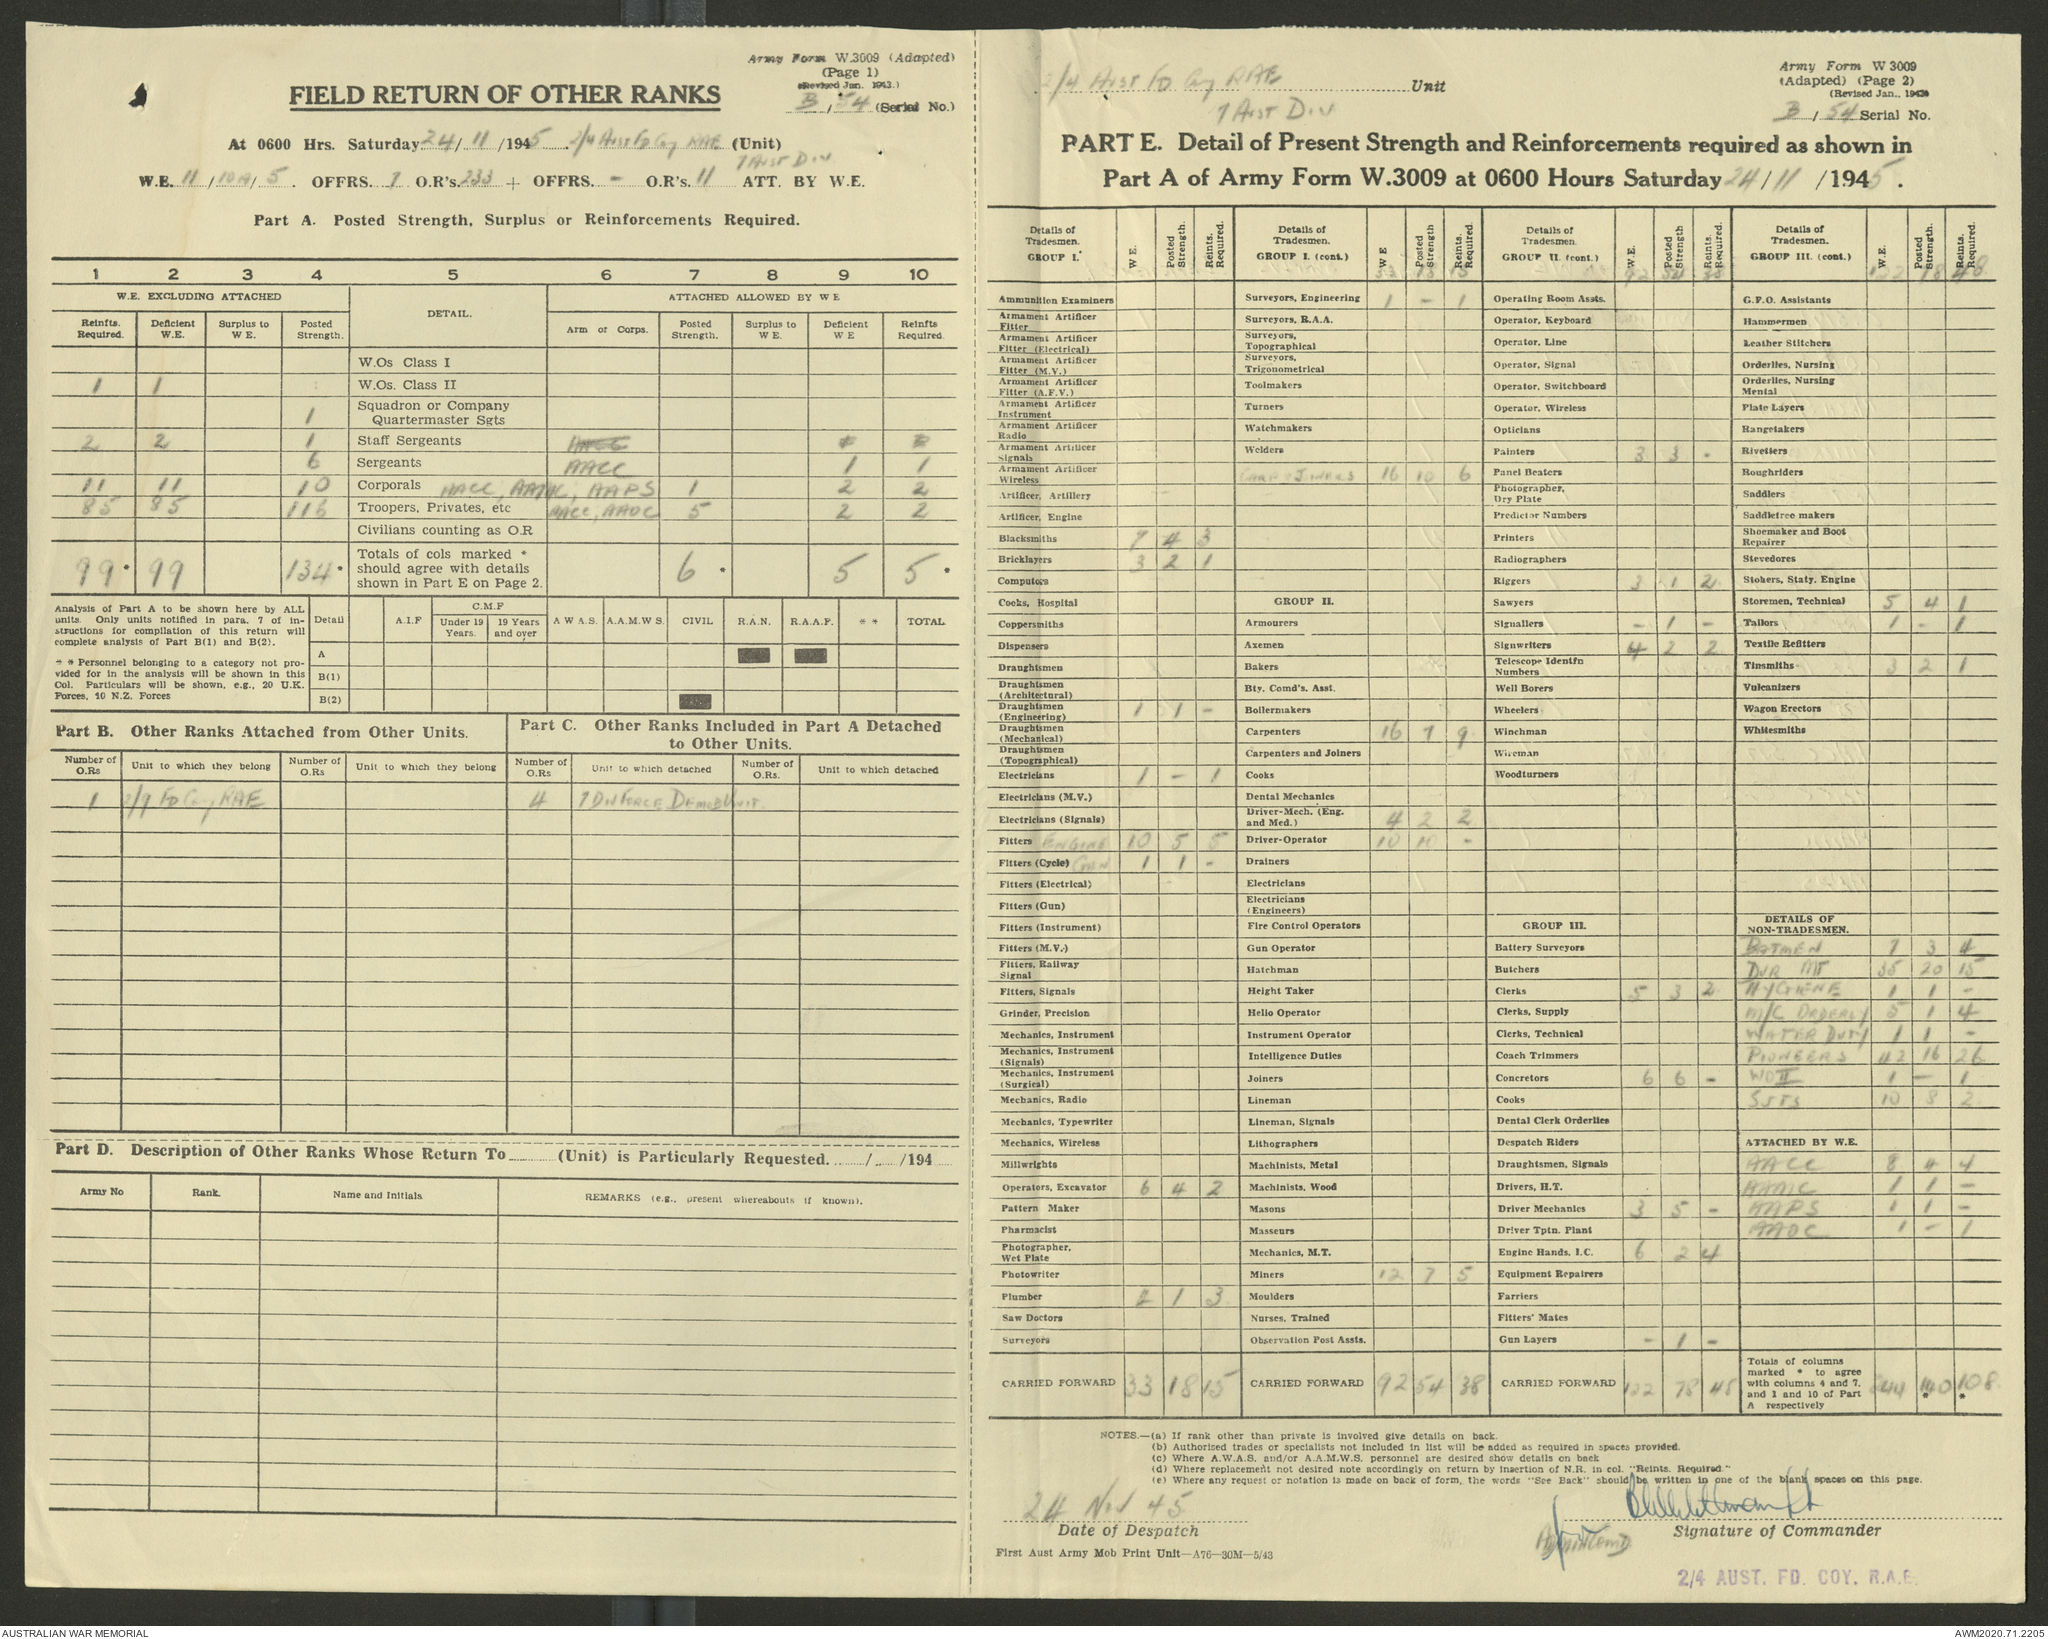 Army Form W.3009 (Adapted)
(Page 1)
(Revised Jun. 1943.)
FIELD RETURN OF OTHER RANKS
B / 54 (Serial No.)
At 0600 Hrs. Saturday 24/ 11 /1945 2/4 Aust Fd Coy RAE (Unit)
7 Aust Div
W.E. 11 / 10A / 5. OFFRS. 7 O.R's. 233 + OFFRS. - O.R's. 11 ATT. BY W.E.
Part A. Posted Strength, Surplus or Reinforcements Required.
1 2 3 4 5 6 7 8 9 10
W.E. EXCLUDING ATTACHED DETAIL. ATTACHED ALLOWED BY W E
Reinfts. Required. Deficient W.E. Surplus to W E. Posted Strength. Arm or Corps. Posted Strength. Surplus to W E. Deficient W E Reinfts Required.
W.Os Class I
1 1 W.Os. Class II
1 Squadron or Company Quartermaster Sgts
2 2 1 Staff Sergeants
6 Sergeants AACC 1 1
11 11 10 Corporals AACC, AAMC, AAPS 1 2 2
85 85 116 Troopers, Privates, etc AACC, AAOC 5 2 2
Civilians counting as O.R
99 * 99 134 * Totals of cols marked * should agree with details shown in Part E on Page 2. 6 * 5 5 *
Analysis of Part A to be shown here by ALL units. Only units notified in para. 7 of instructions for compilation of this return will complete analysis of Part B(1) and B(2).
* * Personnel belonging to a category not provided for in the analysis will be shown in this Col. Particulars will be shown, e.g., 20 U.K. Forces, 10 N.Z. Forces
Detail A.I.F C.M.F Under 19 Years. 19 Years and over A W A.S. A.A.M.W S. CIVIL R.A.N. R.A.A.F. * * TOTAL
A
B(1)
B(2)
Part B. Other Ranks Attached from Other Units.
Part C. Other Ranks Included in Part A Detached to Other Units.
Number of O.Rs Unit to which they belong Number of O.Rs Unit to which they belong Number of O.Rs Unit to which detached Number of O.Rs. Unit to which detached
1 2/9 Fd Coy RAE 4 7 Div Force Demob Unit.
Part D. Description of Other Ranks Whose Return To (Unit) is Particularly Requested. / /194
Army No Rank. Name and Initials REMARKS (e.g., present whereabouts if known).
2/4 Aust Fd Coy RAE Unit
7 Aust Div
Army Form W 3009
(Adapted) (Page 2)
(Revised Jan., 1943)
B / 54 Serial No.
PART E. Detail of Present Strength and Reinforcements required as shown in
Part A of Army Form W.3009 at 0600 Hours Saturday 24/11 /1945.
Details of Tradesmen. GROUP I. W E. Posted Strength. Reints. Required.
Ammunition Examiners
Armament Artificer Fitter
Armament Artificer Fitter (Electrical)
Armament Artificer Fitter (M.V.)
Armament Artificer Fitter (A.F.V.)
Armament Artificer Instrument
Armament Artificer Radio
Armament Artificer Signals
Armament Artificer Wireless
Artificer, Artillery
Artificer, Engine
Blacksmiths 7 4 3
Bricklayers 3 2 1
Computors
Cooks, Hospital
Coppersmiths
Dispensers
Draughtsmen
Draughtsmen (Architectural)
Draughtsmen (Engineering) 1 1 -
Draughtsmen (Mechanical)
Draughtsmen (Topographical)
Electricians 1 - 1
Electricians (M.V.)
Electricians (Signals)
Fitters ENGINE 10 5 5
Fitters (Cycle) GUN 1 1 -
Fitters (Electrical)
Fitters (Gun)
Fitters (Instrument)
Fitters (M.V.)
Fitters, Railway Signal
Fitters, Signals
Grinder, Precision
Mechanics, Instrument
Mechanics, Instrument (Signals)
Mechanics, Instrument (Surgical)
Mechanics, Radio
Mechanics, Typewriter
Mechanics, Wireless
Millwrights
Operators, Excavator 6 4 2
Pattern Maker
Pharmacist
Photographer, Wet Plate
Photowriter
Plumber 1 3
Saw Doctors
Surveyors
CARRIED FORWARD 33 18 15
Details of Tradesmen. GROUP I. (cont.) W E Posted Strength Reints. Required.
33 18 15
Surveyors, Engineering 1 - 1
Surveyors, R.A.A.
Surveyors, Topographical
Surveyors, Trigonometrical
Toolmakers
Turners
Watchmakers
Welders
CARP & JOINERS 16 10 6
GROUP II.
Armourers
Axemen
Bakers
Bty. Comd's. Asst.
Boilermakers
Carpenters 16 7 9
Carpenters and Joiners
Cooks
Dental Mechanics
Driver-Mech. (Eng. and Med.) 4 2 2
Driver-Operator 10 10 -
Drainers
Electricians
Electricians (Engineers)
Fire Control Operators
Gun Operator
Hatchman
Height Taker
Helio Operator
Instrument Operator
Intelligence Duties
Joiners
Lineman
Lineman, Signals
Lithographers
Machinists, Metal
Machinists, Wood
Masons
Masseurs
Mechanics, M.T.
Miners 12 7 5
Moulders
Nurses, Trained
Observation Post Assts.
CARRIED FORWARD 92 54 38
Details of Tradesmen. GROUP II. (cont.) W.E. Posted Strength Reints. Required.
92 54 38
Operating Room Assts.
Operator, Keyboard
Operator, Line
Operator, Signal
Operator, Switchboard
Operator, Wireless
Opticians
Painters 3 3 -
Panel Beaters
Photographer, Dry Plate
Predictor Numbers
Printers
Radiographers
Riggers 3 1 2
Sawyers
Signallers - 1 -
Signwriters 4 2 2
Telescope Identfn Numbers
Well Borers
Wheelers
Winchman
Wireman
Woodturners
GROUP III.
Battery Surveyors
Butchers
Clerks 5 3 2
Clerks, Supply
Clerks, Technical
Coach Trimmers
Concretors 6 6 -
Cooks
Dental Clerk Orderlies
Despatch Riders
Draughtsmen, Signals
Drivers, H.T.
Driver Mechanics 3 5 -
Driver Tptn. Plant
Engine Hands, I.C. 6 2 4
Equipment Repairers
Farriers
Fitters' Mates
Gun Layers - 1 -
CARRIED FORWARD 122 78 48
Details of Tradesmen. GROUP III. (cont.) W.E. Posted Strength. Reints. Required.
122 78 48
G.P.O. Assistants
Hammermen
Leather Stitchers
Orderlies, Nursing
Orderlies, Nursing Mental
Plate Layers
Rangetakers
Rivetters
Roughriders
Saddlers
Saddletree makers
Shoemaker and Boot Repairer
Stevedores
Stokers, Staty. Engine
Storemen, Technical 5 4 1
Tailors 1 - 1
Textile Refitters
Tinsmiths 3 2 1
Vulcanizers
Wagon Erectors
Whitesmiths
DETAILS OF NON-TRADESMEN.
BATMEN 7 3 4
DVR MT 35 20 15
HYGIENE 1 1 -
M/C ORDERLY 5 1 4
WATER DUTY 1 1 -
PIONEERS 42 16 26
WO II 1 - 1
SJTS 10 8 2
ATTACHED BY W.E.
AACC 8 4 4
AAMC 1 1 -
AAPS 1 1 -
AAOC 1 - 1
Totals of columns marked * to agree with columns 4 and 7, and 1 and 10 of Part A respectively 244 140 * 108 *
NOTES.—(a) If rank other than private is involved give details on back.
(b) Authorised trades or specialists not included in list will be added as required in spaces provided.
(c) Where A.W.A.S. and/or A.A.M.W.S. personnel are desired show details on back
(d) Where replacement not desired note accordingly on return by insertion of N.R. in col. "Reints. Required."
(e) Where any request or notation is made on back of form, the words "See Back" should be written in one of the blank spaces on this page.
24 Nov 45
Date of Despatch
Signature of Commander
First Aust Army Mob Print Unit—A76—30M—5/43
2/4 AUST. FD. COY. R.A.E.
AUSTRALIAN WAR MEMORIAL
AWM2020.71.2205